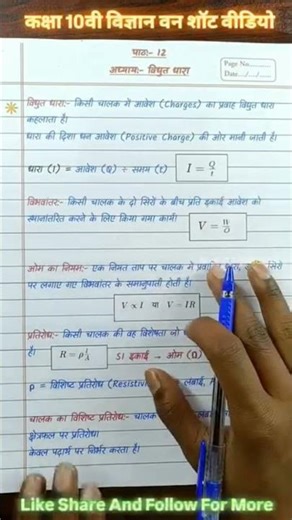 कक्षा 10वी विज्ञान वन शॉट वीडियो
पाठ:- 12
अध्याय:- विधुत धारा
Page No.
Date
विधुत धारा:- किसी चालक में आवेश (Charges) का प्रवाह विधुत धारा
कहलाता है।
धारा की दिशा धन आवेश (Positive Charge) की ओर मानी जाती है।
धारा (I) = आवेश (Q) ÷ समय (t) I = Q/t
विभवांतर:- किसी चालक के दो सिरों के बीच प्रति इकाई आवेश को
स्थानांतरित करने के लिए किया गया कार्य।
V = W/Q
ओम का नियम:- एक नियत ताप पर चालक में सिरों
पर लगाए गए विभवांतर के समानुपाती होती है।
V ∝ I या V = IR
प्रतिरोध:- किसी चालक की वह विशेषता जो
है। R = ρ l/A SI इकाई → ओम (Ω)
ρ = विशिष्ट प्रतिरोध (Resistiv लंबाई,
चालक का विशिष्ट प्रतिरोध:- चालक
क्षेत्रफल पर प्रतिरोध।
केवल पदार्थ पर निर्भर करता है।
Like Share And Follow For More